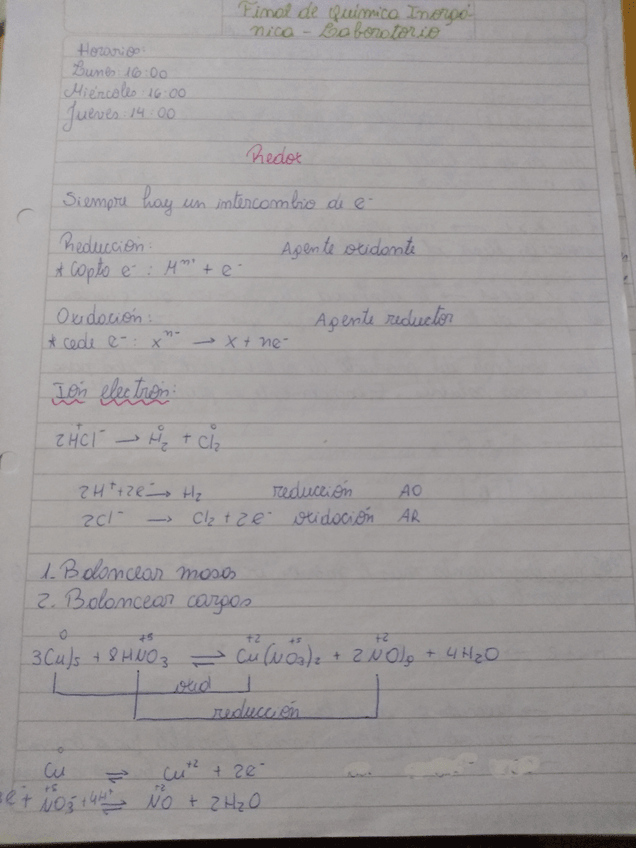 Final de Química Inorgá-
nica - Laboratorio
Horarios:
Lunes 16:00
Miércoles 16:00
Jueves 14:00
Redox
Siempre hay un intercambio de e⁻
Reducción: Agente oxidante
* Capta e⁻ : Mⁿ⁺ + e⁻
Oxidación: Agente reductor
* cede e⁻ : xⁿ⁻ → x + ne⁻
Ión electrón:
2H⁺Cl⁻ → H₂⁰ + Cl₂⁰
2H⁺+2e⁻ → H₂ reducción AO
2Cl⁻ → Cl₂ + 2e⁻ oxidación AR
1. Balancear masas
2. Balancear cargas
0 +5 +2 +5 +2
3Cu)s + 8HNO₃ ⇌ Cu(NO₃)₂ + 2NO)g + 4H₂O
oxid
reducción
0
Cu ⇌ Cu⁺² + 2e⁻
+5 +2
e⁻ + NO₃⁻ + 4H⁺ ⇌ NO + 2H₂O